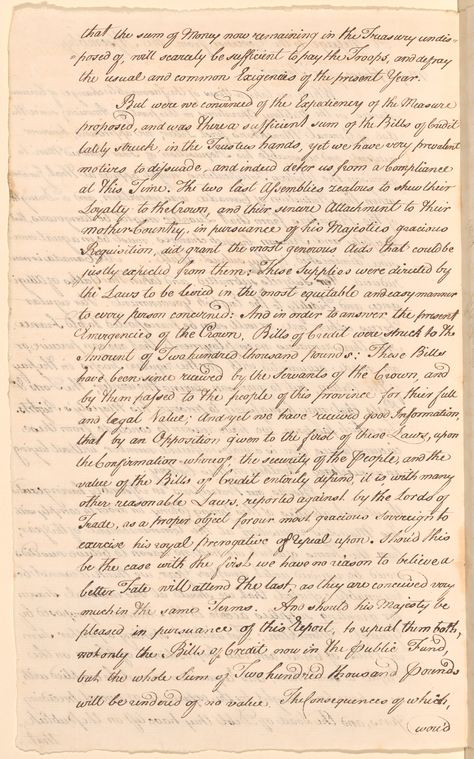 that the sum of Money now remaining in the Treasury undis=
=posed of, will scarcely be sufficient to pay the Troops, and defray
the usual and common Exigencies of the present Year.
But were we convinced of the Expediency of the Measure
proposed, and was there a sufficient sum of the Bills of Credit
lately struck, in the Trustees hands, yet we have very prevalent
motives to dissuade, and indeed deter us from a Compliance
at this Time. The two last Assemblies zealous to shew their
Loyalty to the Crown, and their sincere Attachment to their
mother Country, in pursuance of his Majesties gracious
Requisition, did grant the most generous Aids that could be
justly expected from them: These Supplies were directed by
the Laws to be levied in the most equitable and easy manner
to every person concerned: And in order to answer the present
Emergencies of the Crown, Bills of Credit were struck to the
Amount of Two hundred thousand Pounds: These Bills
have been since received by the Servants of the Crown, and
by them passed to the people of this province for their full
and legal Value; And yet we have received good Information,
that by an Opposition given to the first of these Laws, upon
the Confirmation whereof the security of the People, and the
value of the Bills of Credit entirely depend, it is with many
other reasonable Laws, reported against by the Lords of
Trade, as a proper object for our most gracious Sovereign to
exercise his royal Prerogative of Repeal upon. Should this
be the case with the first we have no reason to believe a
better Fate will attend the last, as they are conceived very
much in the same Terms. And should his Majesty be
pleased in pursuance of this Report, to repeal them both,
not only the Bills of Credit now in the Public Fund,
but the whole Sum of Two hundred thousand Pounds
will be rendered of no value. The consequences of which,
wou'd